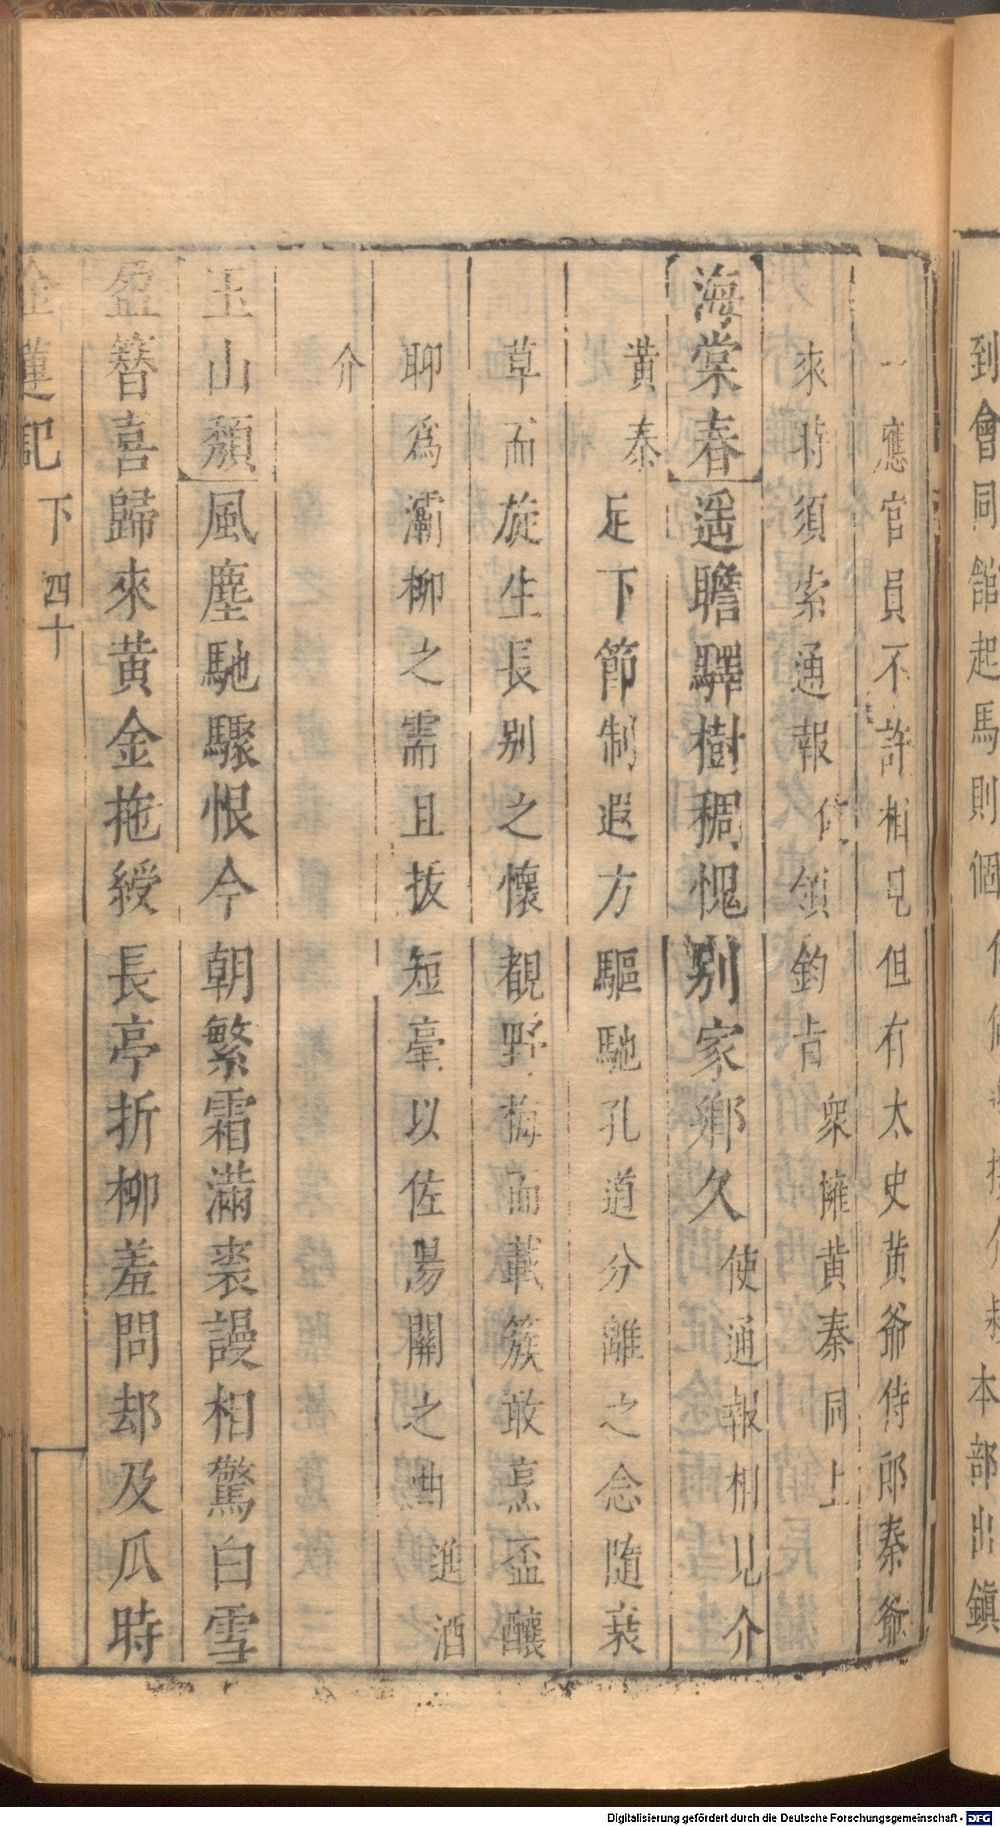 到會同舘起馬則個
本部出鎮
一應官員不許相見但有太史黄爺侍郎秦爺
來時須索通報 領鈞肯 衆擁黄秦同上
海棠春 遥瞻驛樹稠愧别家鄉久 使通報相見介
黄泰 足下節制遐方驅馳孔道分離之念随衰
草而旋生長别之懷覩野梅而載簇敢烹盃釀
聊爲灞柳之需且抜短毫以佐陽關之曲 進酒
介
玉山頽 風塵馳驟恨今朝繁霜滿裘謾相驚白雪
盈簪喜歸來黄金拖綬長亭折柳羞問却及瓜時
金蓮記 下 四十
Digitalisierung gefördert durch die Deutsche Forschungsgemeinschaft - DFG